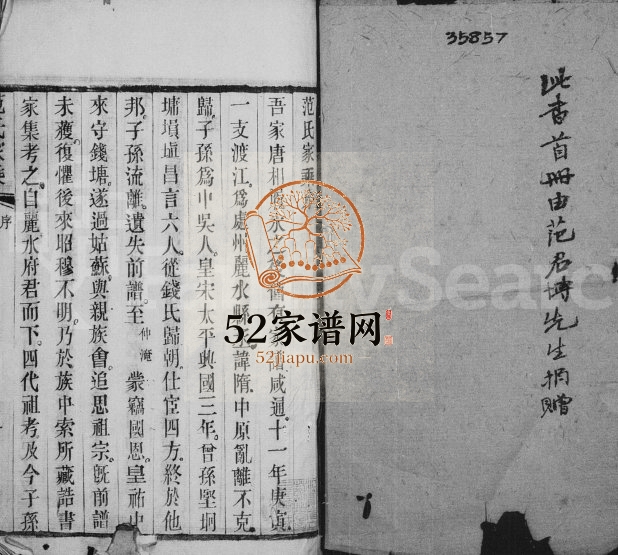 35857
此書首冊由范君博先生捐贈
范氏家乘
吾家唐相冰之舊有咸通。十一年庚寅
一支渡江。爲處州麗水縣諱隋。中原亂離不克
歸。子孫爲中吳人。皇宋太平興國三年。曾孫堅坰
墉塤埴昌言六人。從錢氏歸朝。仕宦四方。終於他
邦。子孫流離。遺失前譜。至仲淹蒙竊國恩。皇祐中
來守錢塘。遂過姑蘇與親族會。追思祖宗。旣前譜
未獲。復懼後來昭穆不明。乃於族中索所藏誥書
家集考之。自麗水府君而下。四代祖考及今子孫
范氏家乘
序
52家谱网
52jiapu.com